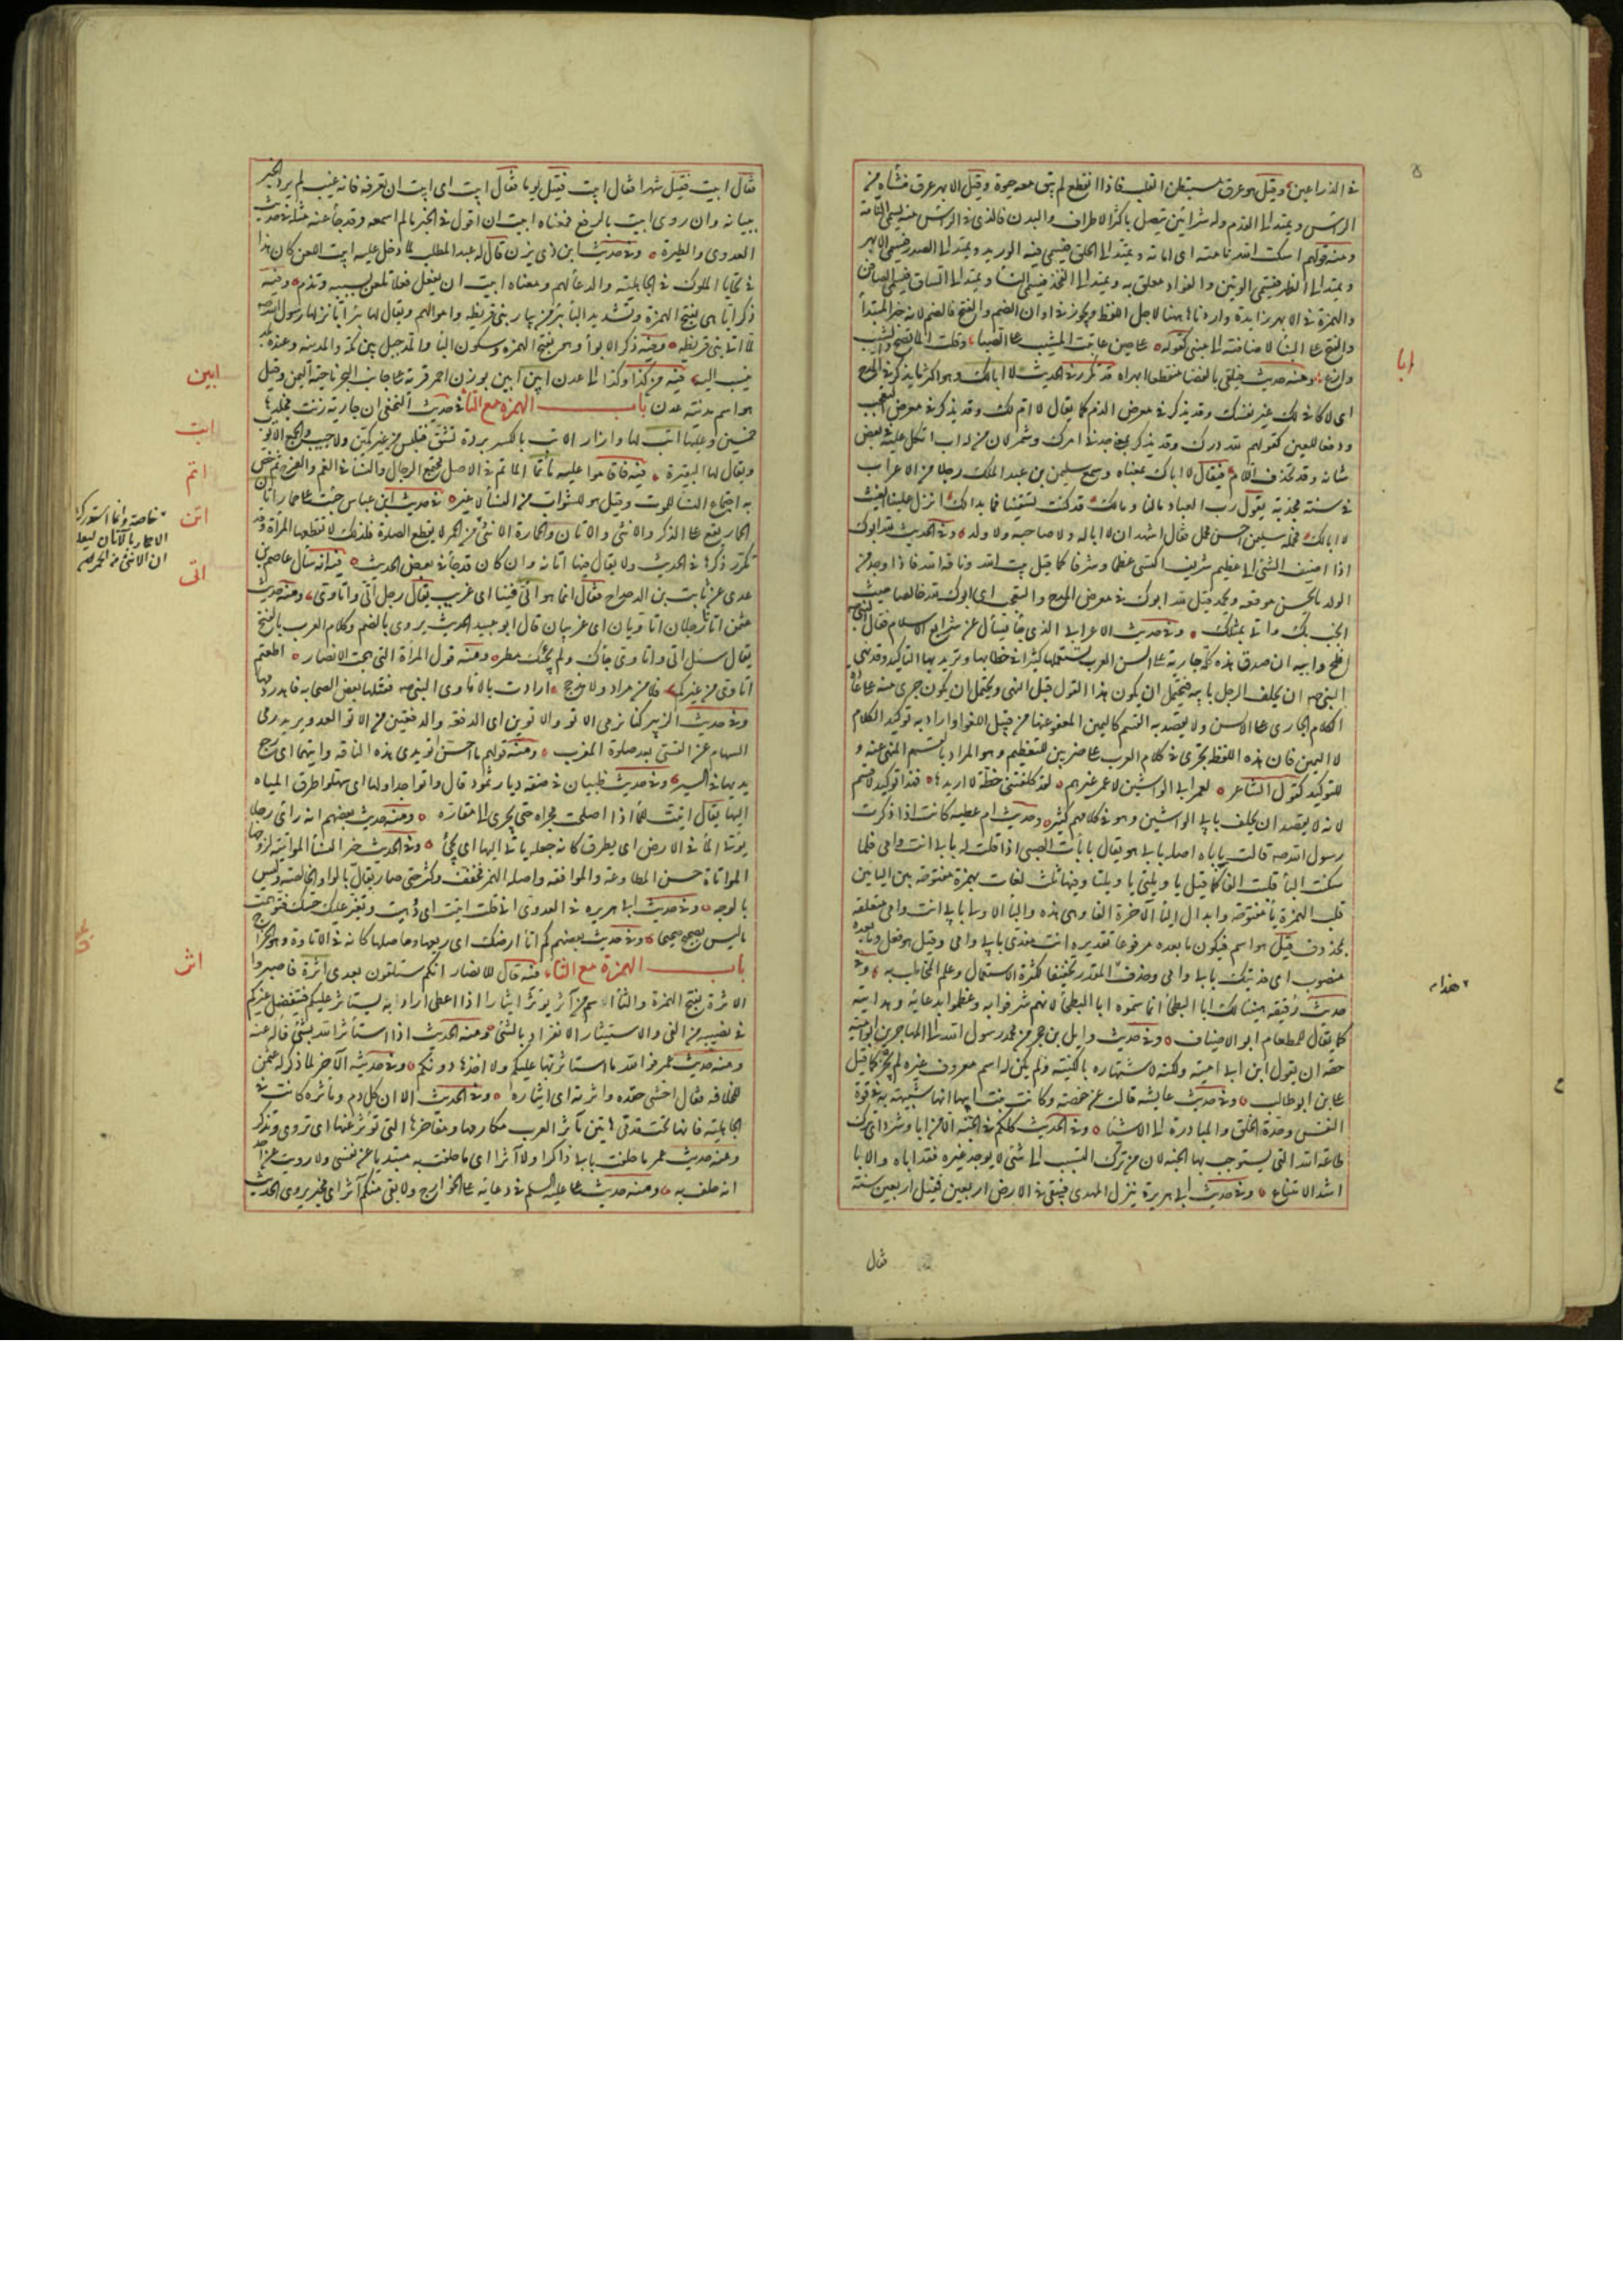 في الذراعين وقيل هو عرق مستبطن القلب فاذا انقطع لم تبق معه حيوة وقيل الابهر عرق منشأه من
الراس ويمتد الى القدم وله شرائين تتصل باكثر الاطراف والبدن فالذي في الراس منه يسمى النامة
ومنه قولهم اسكت الله نامته اي اماته ويمتد الى الحلق فيسمى فيه الوريد ويمتد الى الصدر فيسمى الابهر
ويمتد الى الظهر فيسمى الوتين والفؤاد معلق به ويمتد الى الفخذ فيسمى النسا ويمتد الى الساق فيسمى الصافن
والهمزة في الابهر زايدة واوردناها هنا لاجل اللفظ ويجوز في اوان الضم والفتح فالضم لانه خبر المبتدأ
والفتح على البناء لاضافته الى مبني كقوله على حين عاتبت المشيب على الصبا وقلت الما تصح والشيب
وازع ومنه حديث فيلقى بالفضا منقطعا ابهراه قد تكرر في الحديث لا ابا لك وهو اكثر ما يذكر في المدح
اي لا كافي لك غير نفسك وقد يذكر في معرض الذم كما يقال لا ام لك وقد يذكر في معرض التعجب
ودفعا للعين كقولهم لله درك وقد يذكر بمعنى جد في امرك وشمر لان من له اب اتكل عليه في بعض
شانه وقد تحذف اللام فيقال لا اباك بمعناه وسمع سليمن بن عبد الملك رجلا من الاعراب
في سنة مجدبة يقول رب العباد مالنا ومالك قد كنت تسقينا فما بدا لك انزل علينا الغيث
لا ابا لك فحمله سليمن احسن محمل فقال اشهد ان لا ابا له ولا صاحبة ولا ولد وفي الحديث لله ابوك
اذا اضيف الشئ الى عظيم شريف اكتسى عظما وشرفا كما قيل بيت الله وناقة الله فاذا وجد من
الولد ما يحسن موقعه ويحمد قيل لله ابوك في معرض المدح والتعجب اي ابوك لله خالصا حيث
انجب بك واتى بمثلك وفي حديث الاعرابي الذي جا يسأل عن شرايع الاسلام فقال النبي
افلح وابيه ان صدق هذه كلمة جارية على السن العرب تستعملها كثيرا في خطابها وتريد بها التاكيد وقد نهى
النبي ص ان يحلف الرجل بابيه فيحتمل ان يكون هذا القول قبل النهي ويحتمل ان يكون جرى منه على عادة
الكلام الجاري على الالسن ولا يقصد به القسم كاليمين المعفو عنها من قبيل اللغو او اراد به توكيد الكلام
لا اليمين فان هذه اللفظة تجري في كلام العرب على ضربين للتعظيم وهو المراد بالقسم المنهي عنه و
للتوكيد كقول الشاعر لعمر ابي الواشين لا عمر غيرهم لقد كلفتني خطة لا اريدها فهذا توكيد لا قسم
لانه لا يقصد ان يحلف بابي الواشين وهو في كلامهم كثير وحديث ام عطيه كانت اذا ذكرت
رسول الله ص قالت بياباه اصله بابي هو يقال بابأت الصبي اذا قلت له بابي انت وامي فلما
سكنت اليأ قلبت الفا كما قيل يا ويلتي يا ويلتا وفيها ثلث لغات بهمزة مفتوحة بين البائين
قلب الهمزة ياء مفتوحة وابدال اليأ الآخرة الفا وهي هذه والبأ الاولى بابي انت وامي متعلقة
بمحذوف قيل هو اسم فيكون ما بعده مرفوعا تقديره انت مفدى بابي وامي وقيل هو فعل وما بعده
منصوب اي فديتك بابي وامي وحذف المقدر تخفيفا لكثرة الاستعمال وعلم المخاطب به وفي
حديث رقيقه هنيئا لك ابا البطحا انما سموه ابا البطحا لانهم شرفوا به وعظموا بدعائه وهدايته
كما يقال للمطعام ابو الاضياف وفي حديث وايل بن حجر من محمد رسول الله الى المهاجر بن ابو امية
حقه ان يقول ابن ابي امية ولكنه لاشتهاره بالكنية ولم يكن له اسم معروف غيره لم يجر كما قيل
علي بن ابو طالب وفي حديث عايشه قالت عن حفصة وكانت بنت ابيها انها شبيهة به في قوة
النفس وحدة الخلق والمبادرة الى الاشيا وفي الحديث كلكم في الجنه الا من ابا وشرد اي ترك
طاعة الله التي يستوجب بها الجنه لان من ترك التسبب الى شئ لا يوجد بغيره فقد اباه والابا
اشد الامتناع وفي حديث ابي هريرة ينزل المهدي فيبقى في الارض اربعين فقيل اربعين سنة
ابا
قال
فقال ابيت فقيل شهرا فقال ابيت فقيل يوما فقال ابيت اي ابيت ان تعرفه فانه غيب لم يرد الخبر
ببيانه وان روي ابيت بالرفع فمعناه ابيت ان اقول في الخبر ما لم اسمعه وقد جأ عنه مثله في حديث
العدوى والطيرة وفي حديث ابن ذي يزن قال له عبد المطلب لما دخل عليه ابيت اللعن كان هذا
في تحايا الملوك في الجاهلية والدعا لهم ومعناه ابيت ان تفعل فعلا تلعن بسببه وتذم وفيه
ذكر ابا هي بفتح الهمزة وتشديد البأ بئر من بيار بني قريظه واموالهم ويقال لها بئر ابا نزلها رسول الله ص
لما اتى بني قريظه وفيه ذكر الابوأ وهو بفتح الهمزه وسكون البأ والمد جبل بين مكه والمدينه وعنده بلد
ينسب اليه فيه من كذا وكذا الى عدن ابين ابين بوزن احمر قرية على جانب البحر ناحية اليمن وقيل
هو اسم مدينة عدن باب الهمزة مع التاء في حديث النخعي ان جارية زنت فجلدها
خمسين وعليها اتب لها وازار الاتب بالكسر بردة تشق فتلبس من غير كمين ولا جيب والجمع الاتوب
ويقال لها البقيرة فيه فاقاموا عليه مأتما المأتم في الاصل مجتمع الرجال والنسأ في الغم والفرح ثم خص
به اجتماع النسأ للموت وقيل هو للشواب من النسأ لا غير في حديث ابن عباس جئت على حمار اتان
الحمار يقع على الذكر والانثى والاتان والحمارة الانثى من الحمر لا يقطع الصلوة فلذلك لا تقطعها المراة وقد
تكرر ذكرها في الحديث ولا يقال فيها اتانه وان كان قد جأ في بعض الحديث فيه انه سأل عاصم بن
عدي عن ثابت بن الدحداح فقال انما هو اتي فينا اي غريب يقال رجل اتي واتاوي ومنه حديث
عثمن انا رجلان اتاويان اي غريبان قال ابو عبيد الحديث يروى بالضم وكلام العرب بالفتح
يقال سيل اتي واتاوي جاك ولم يجئك مطره ومنه قول المراة التي هجت الانصار اطعتم
اتاوي من غيركم فلا من مراد ولا مذحج ارادت بالاتاوي النبي ص فقتلها بعض الصحابه فاهدر دمها
وفي حديث الزبير كنا نرمي الاتو والاتوين اي الدفعة والدفعتين من الاتو العدو يريد رمي
السهام عن القسي بعد صلوة المغرب ومنه قولهم ما احسن اتو يدي هذه الناقه واتيهما اي رجع
يديها في السير وفي حديث ظبيان في صفة ديار ثمود قال واتوا جداولها اي سهلوا طرق المياه
اليها يقال اتيت للمأ اذا اصلحت مجراه حتى يجري الى مقاره ومنه حديث بعضهم انه رأى رجلا
يؤتي المأ في الارض اي يطرق كانه جعله ياتي اليها اي يجئ وفي الحديث خير النسأ المواتية لزوجها
المواتاة حسن المطاوعة والموافقه واصله الهمز فخفف وكثر حتى صار يقال بالواو الخالصة وليس
بالوجه وفي حديث ابي هريره في العدوى اني قلت اتيت اي دهيت وتغير عليك حسك فتوهمت
ما ليس بصحيح صحيحا وفي حديث بعضهم كم اتأ ارضك اي ريعها وحاصلها كانه في الاتاوة وهو الخراج
باب الهمزة مع الثاء فيه قال للانصار انكم ستلقون بعدي اثرة فاصبروا
الاثرة بفتح الهمزة والثأ الاسم من آثر يؤثر ايثارا اذا اعطى اراد انه يستاثر عليكم فيفضل غيركم
في نصيبه من الفئ والاستيثار الانفراد بالشئ ومنه الحديث اذا استأثر الله بشئ فاله عنه
ومنه حديث عمر فوالله ما استاثر بها عليكم ولا اخذها دونكم وفي حديثه الآخر لما ذكر له عثمن
للخلافه فقال اخشى حفده واثرته اي ايثاره وفي الحديث الا ان كل دم ومأثره كانت في
الجاهلية فانها تحت قدمي هاتين مآثر العرب مكارمها ومفاخرها التي توثر عنها اي تروى وتذكر
ومنه حديث عمر ما حلفت بابي ذاكرا ولا آثرا اي ما حلفت به مبتديا عن نفسي ولا رويت عن احد
انه حلف به ومنه حديث علي عليه السلم في دعائه على الخوارج ولا بقي منكم آثر اي مخبر يروي الحديث
ابين
اتب
اتم
اتن
اتى
اثر
خاصة وانما استدرك
الحمار بالاتان ليعلم
ان الانثى من الحمر